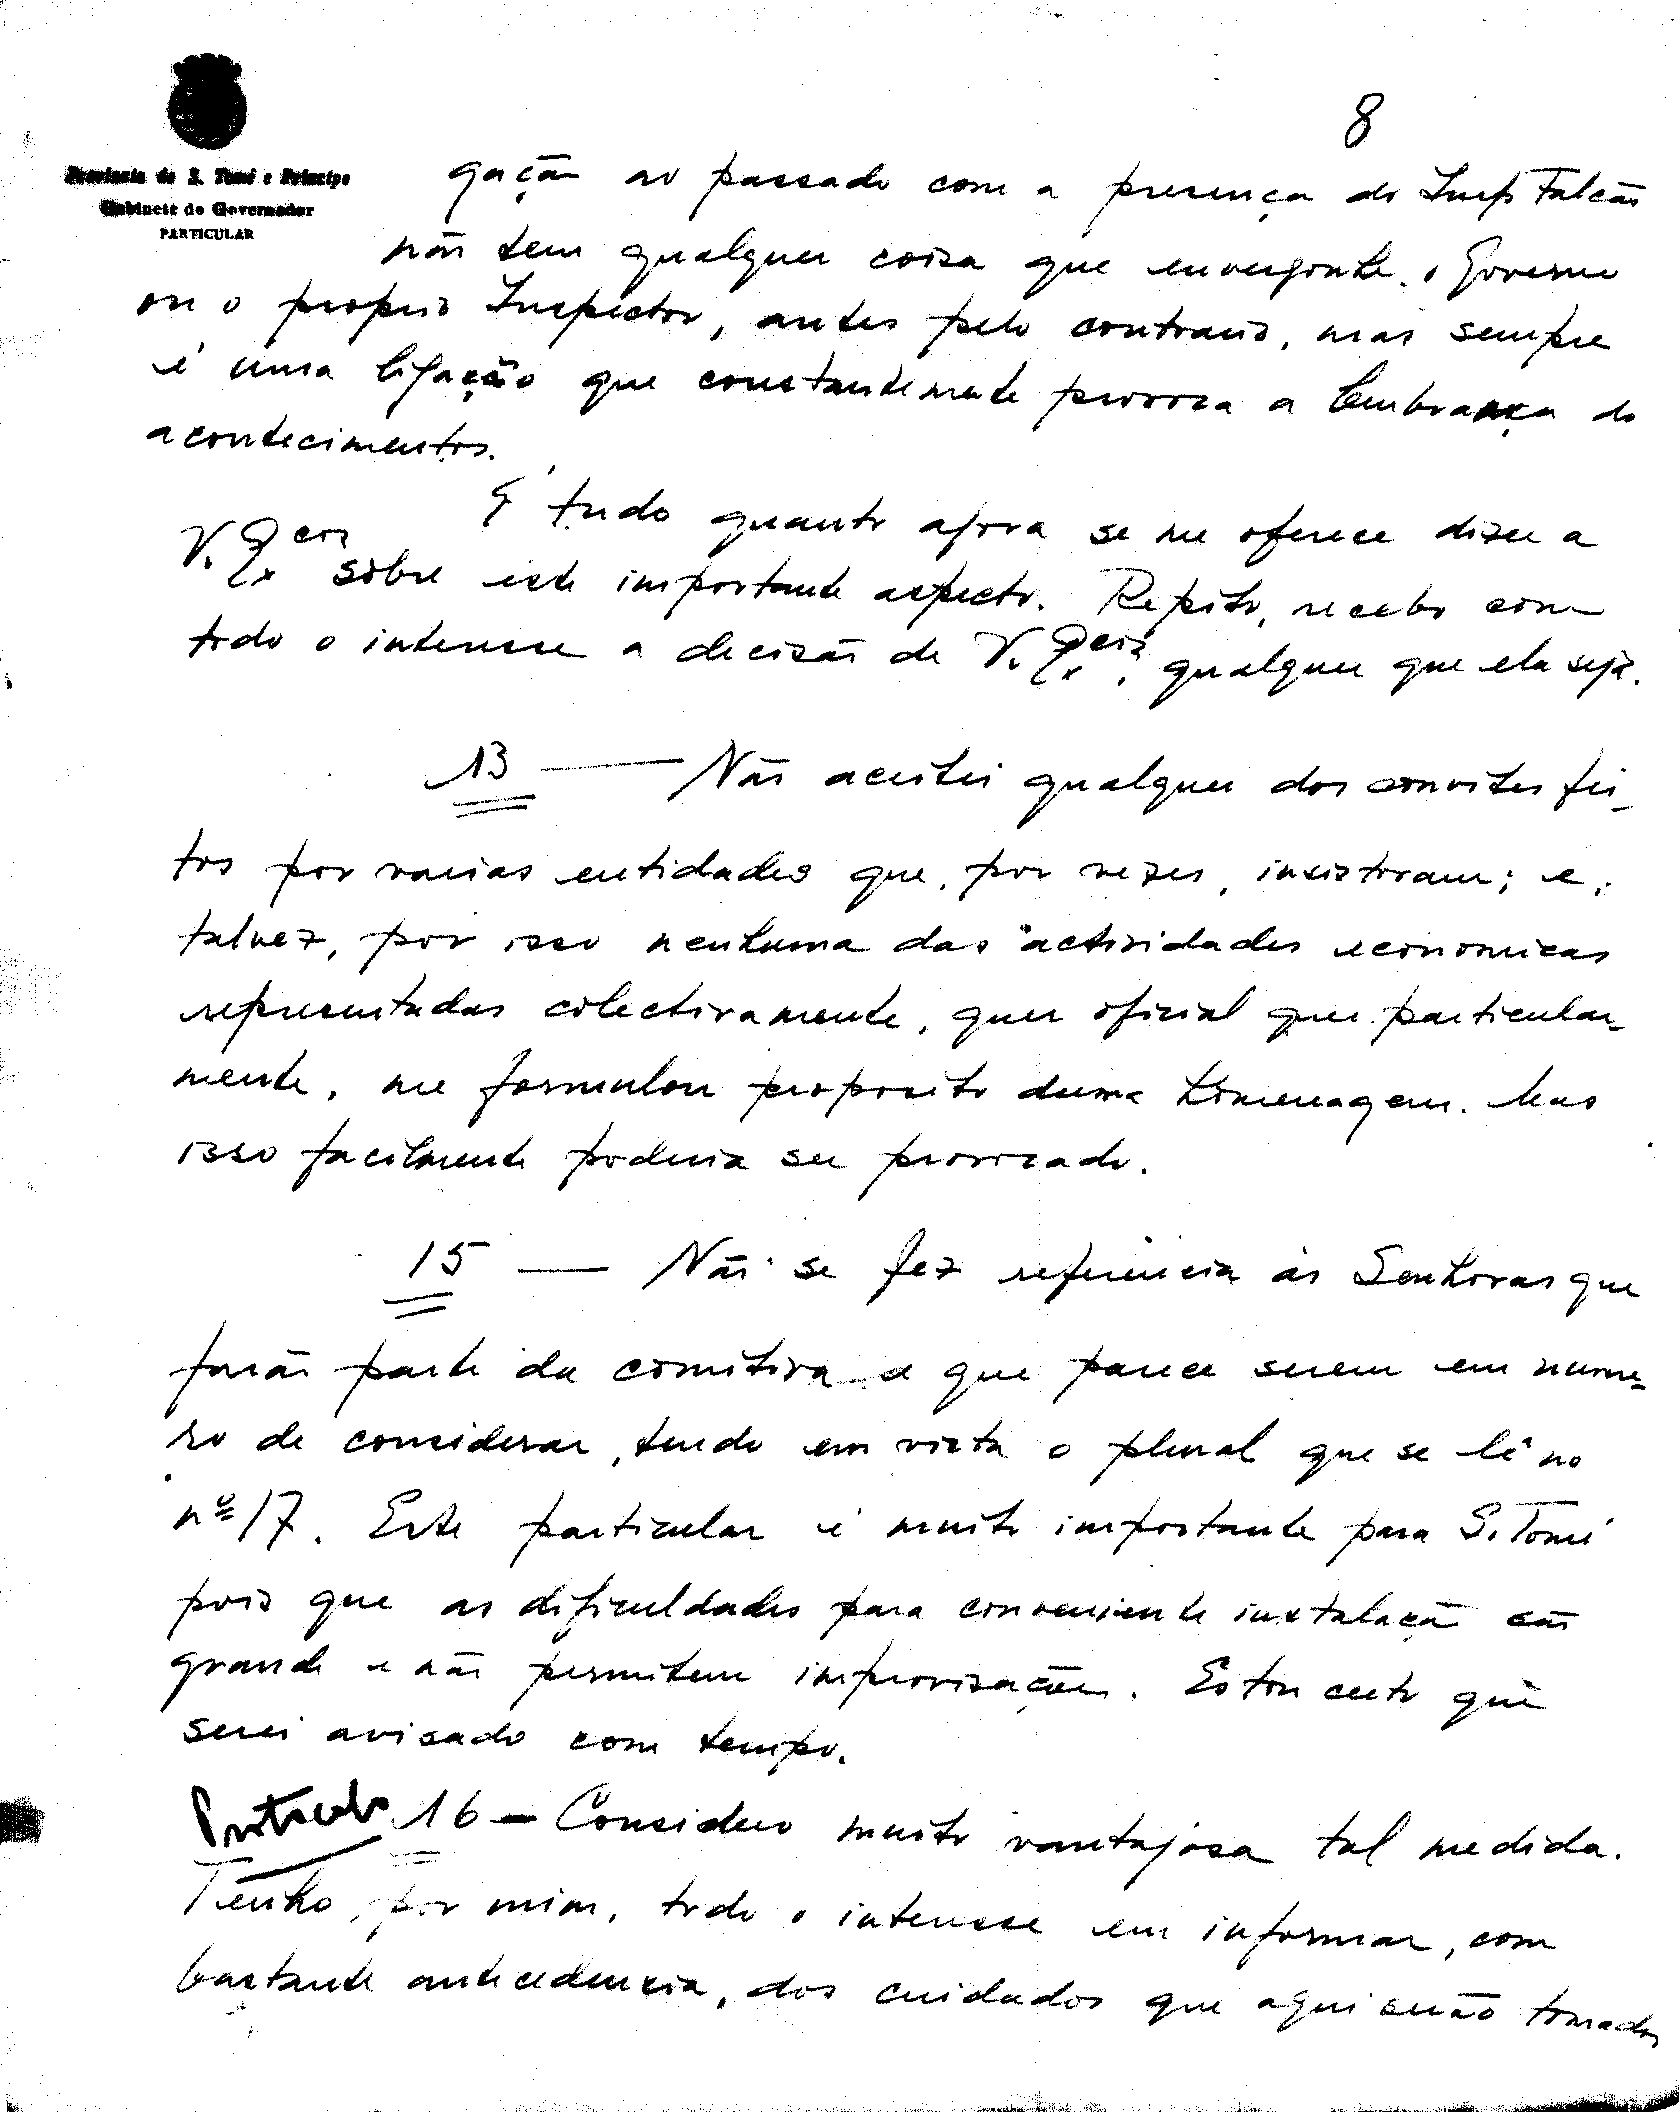 8
Provincia de S. Tomé e Príncipe
Gabinete do Governador
PARTICULAR
gação ao passado com a presença do Insp. Falcão
não tem qualquer coisa que envergonhe o Governo
ou o proprio Inspector, antes pelo contrario, mas sempre
é uma ligação que constantemente provoca a lembrança de
acontecimentos.
É tudo quanto agora se me oferece dizer a
V. Ex.cia sôbre este importante aspecto. Repito, recebo com
todo o interesse a decisão de V. Ex.cia, qualquer que ela seja.
13 — Não aceitei qualquer dos convites fei-
tos por varias entidades que, por vezes, insistiram; e,
talvez, por isso nenhuma das actividades economicas
representadas colectivamente, quer oficial quer particular-
mente, me formulou proposito duma homenagem. Mas
isso facilmente poderia ser provocado.
15 — Não se fez referência às Senhoras que
farão parte da comitiva e que parece serem em nume-
ro de considerar, tendo em vista o plural que se lê no
nº 17. Este particular é muito importante para S. Tomé
pois que as dificuldades para conveniente instalação são
grande e não permitem improvisações. Estou certo que
serei avisado com tempo.
Protocolo 16 — Considero muito vantajosa tal medida.
Tenho, por mim, todo o interesse em informar, com
bastante antecedencia, dos cuidados que aqui serão tomados